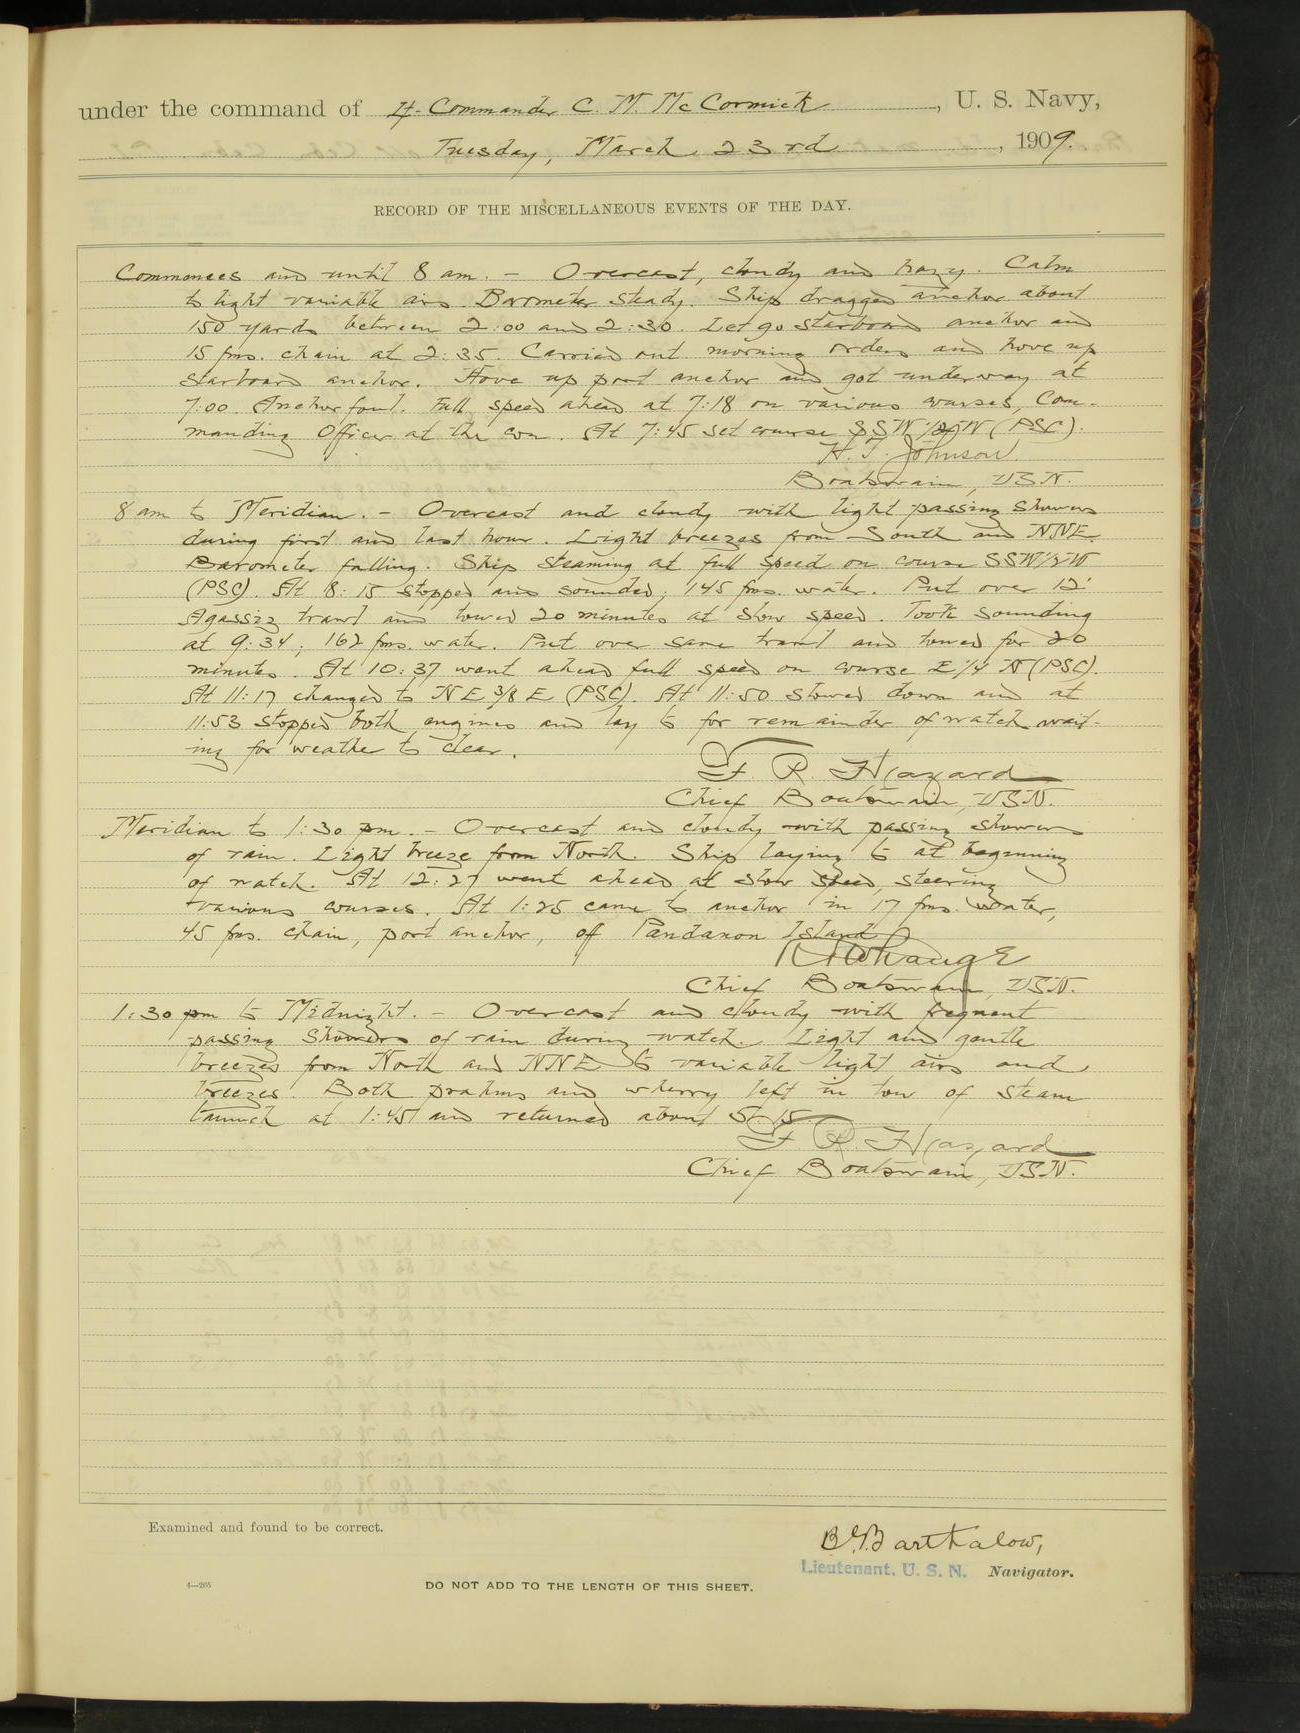 under the command of Lt. Commander C. M. McCormick, U. S. Navy,
Tuesday, March 23rd, 1909.
RECORD OF THE MISCELLANEOUS EVENTS OF THE DAY.
Commences and until 8 am. - Overcast, cloudy and hazy. Calm
to light variable airs. Barometer steady. Ship dragged anchor about
150 yards between 2:00 and 2:30. Let go starboard anchor and
15 fms. chain at 2:35. Carried out morning orders and hove up
starboard anchor. Hove up port anchor and got underway at
7:00. Anchor foul. Full speed ahead at 7:18 on various courses, Com-
manding Officer at the con. At 7:45 set course SSW 1/2 W (PSC).
H. T. Johnson
Boatswain, USN.
8 am to Meridian. - Overcast and cloudy with light passing showers
during first and last hour. Light breezes from South and NNE.
Barometer falling. Ship steaming at full speed on course SSW 1/2 W
(PSC). At 8:15 stopped and sounded; 145 fms. water. Put over 12'
Agassiz trawl and towed 20 minutes at slow speed. Took sounding
at 9:34; 162 fms. water. Put over same trawl and towed for 20
minutes. At 10:37 went ahead full speed on course E 1/4 N (PSC).
At 11:17 changed to NE 3/8 E (PSC). At 11:50 slowed down and at
11:53 stopped both engines and lay to for remainder of watch wait-
ing for weather to clear.
F. R. Hazard
Chief Boatswain, USN.
Meridian to 1:30 pm. - Overcast and cloudy with passing showers
of rain. Light breeze from North. Ship laying to at beginning
of watch. At 12:27 went ahead at slow speed, steering
various courses. At 1:25 came to anchor in 17 fms. water,
45 fms. chain, port anchor, off Pandanon Island
Chief Boatswain, USN.
1:30 pm to Midnight. - Overcast and cloudy with frequent
passing showers of rain during watch. Light and gentle
breezes from North and NNE to variable light airs and
breezes. Both prahms and wherry left in tow of steam
launch at 1:45 and returned about 5:15.
F. R. Hazard
Chief Boatswain, USN.
Examined and found to be correct.
Barthalow,
Lieutenant. U. S. N. Navigator.
4—265
DO NOT ADD TO THE LENGTH OF THIS SHEET.